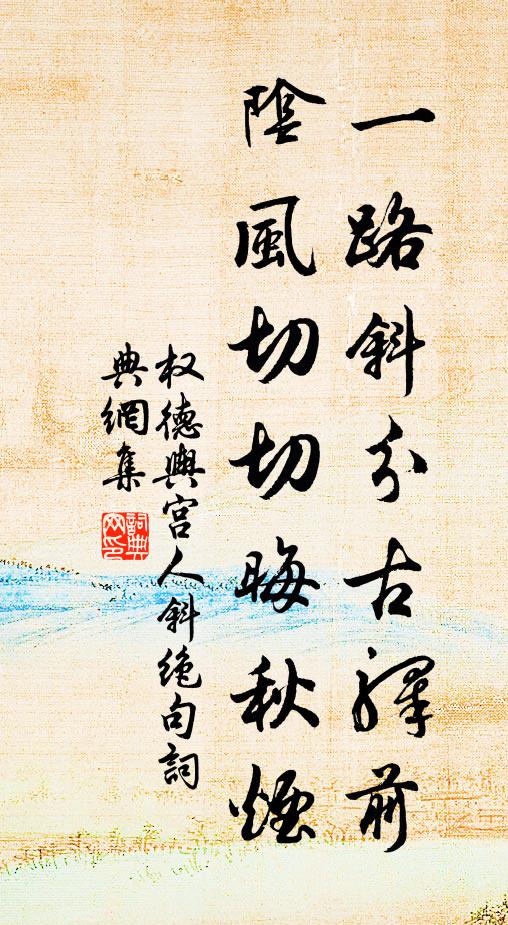 一路斜分古驛前
陰風切切晦秋煙
权德輿宮人斜绝句詞
典網集
詞典網印